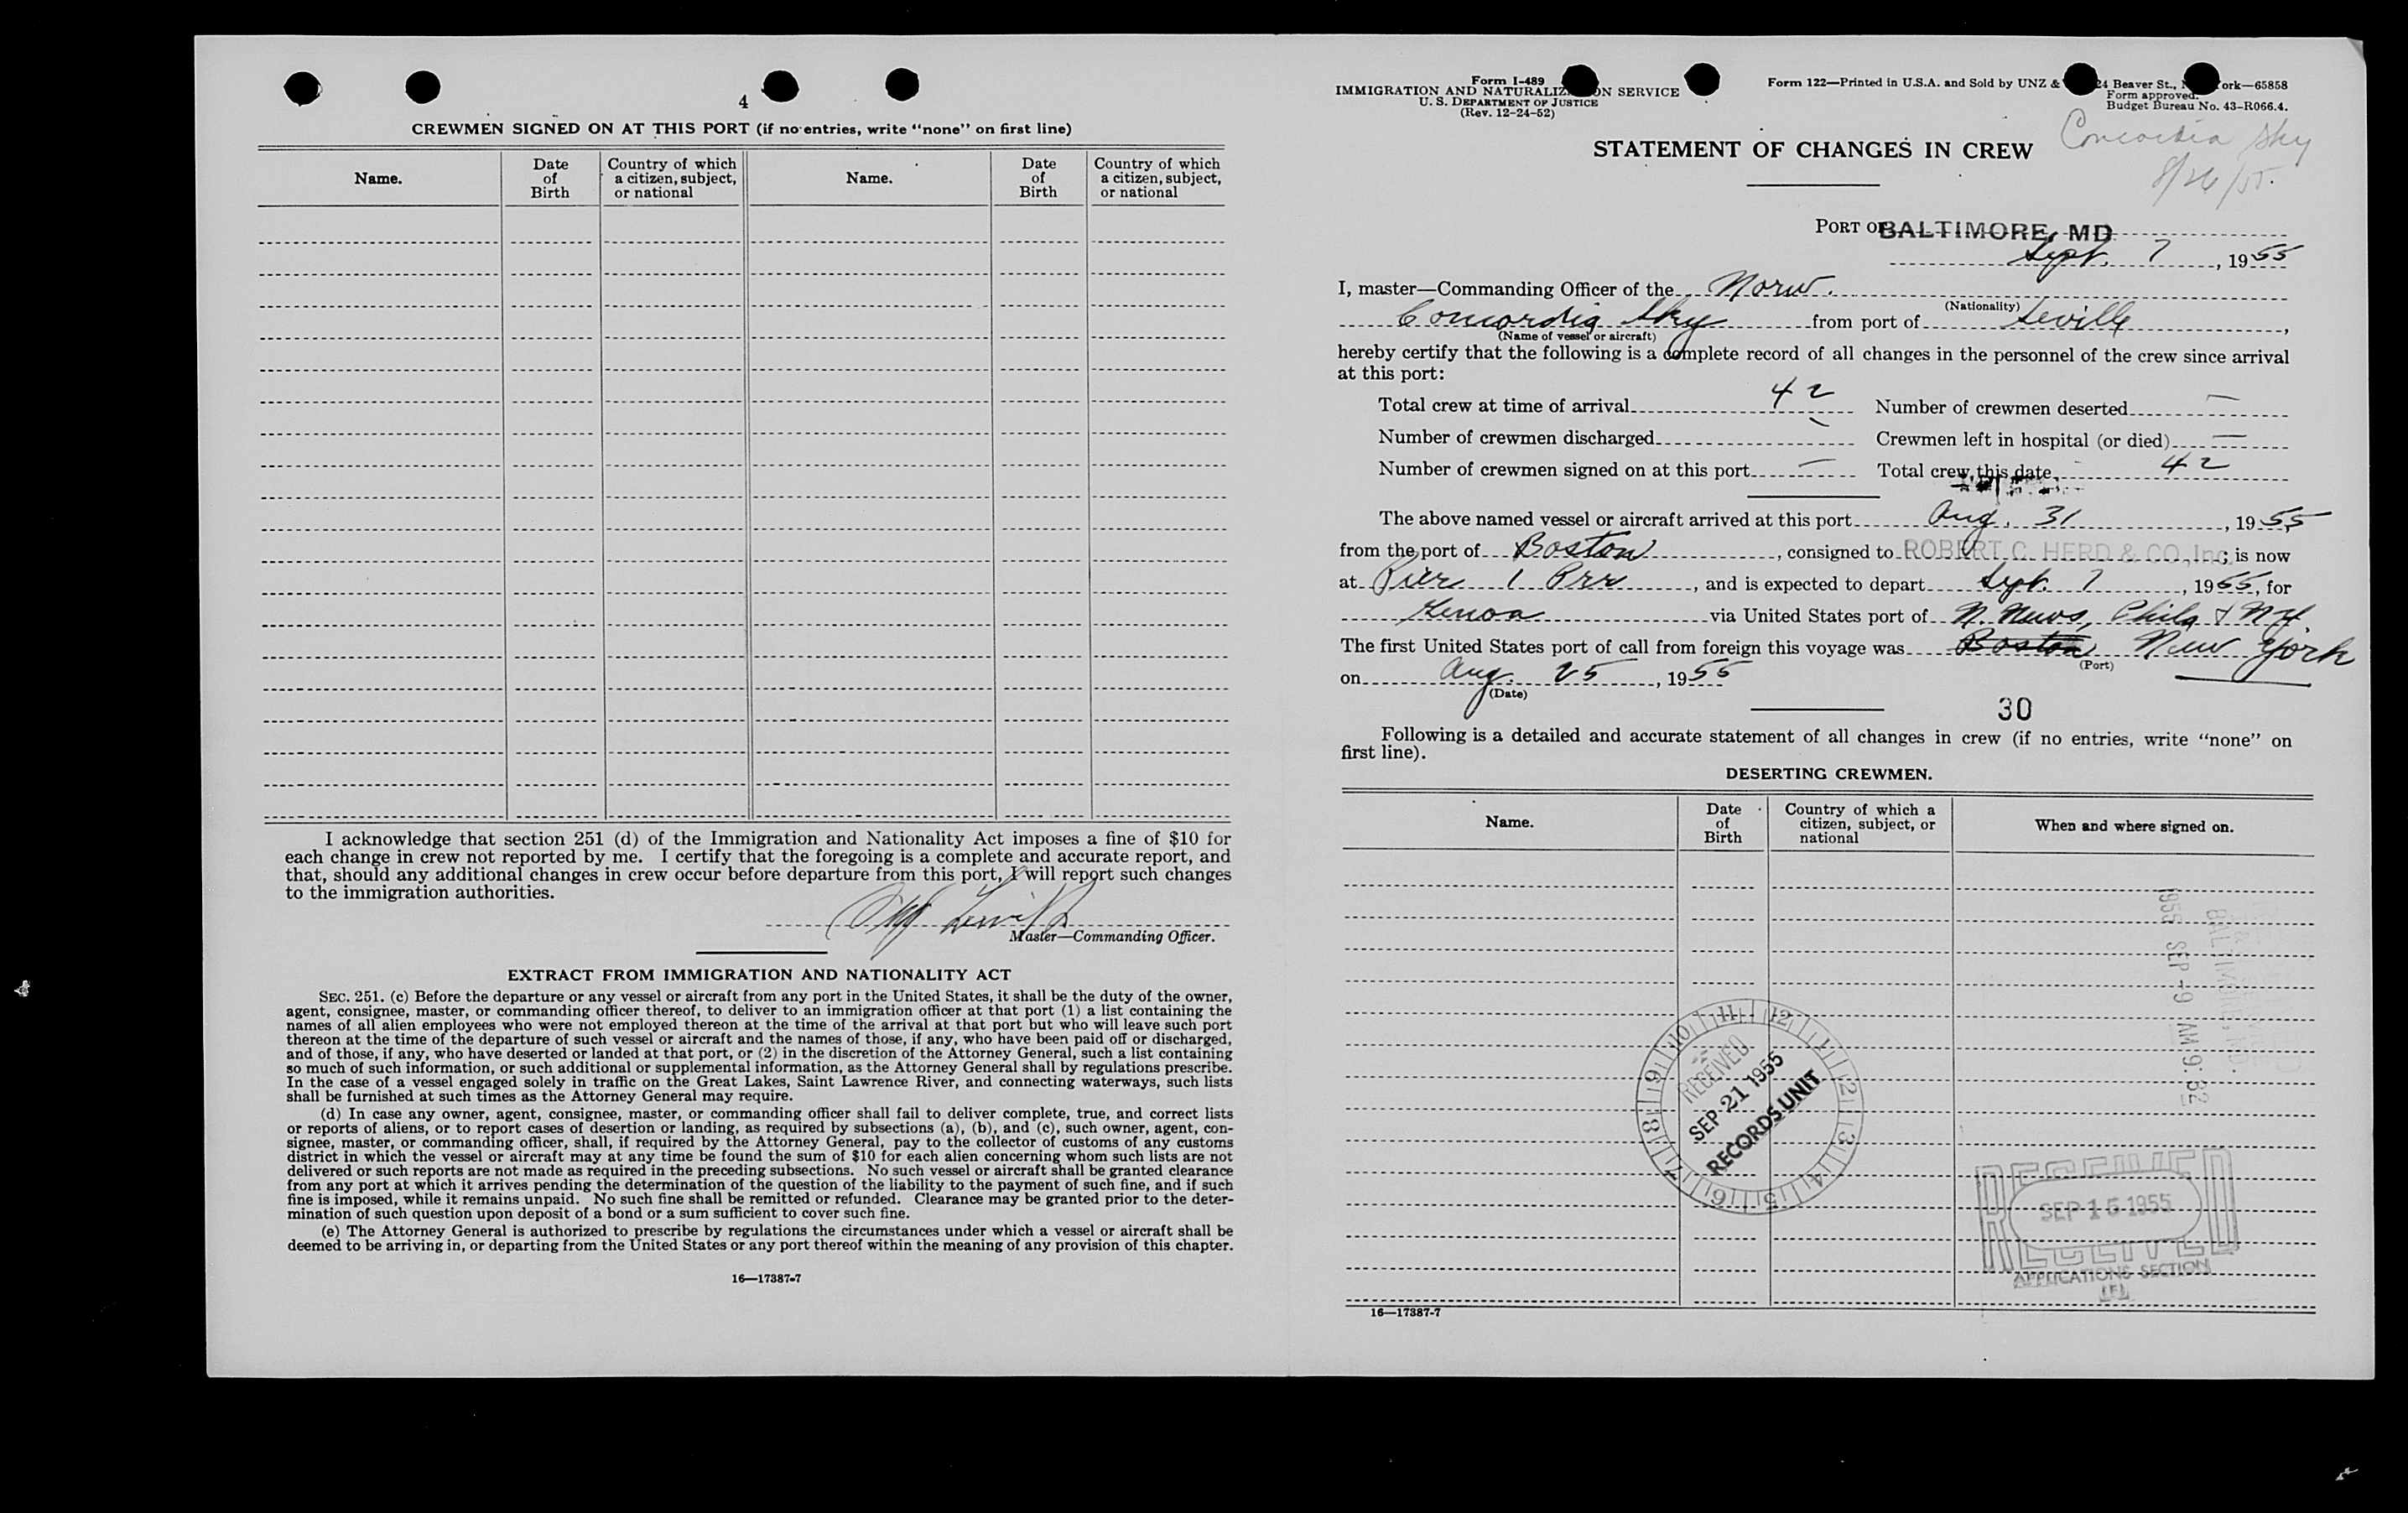 4
CREWMEN SIGNED ON AT THIS PORT (if no entries, write "none" on first line)
Name.
Date
of
Birth
Country of which
a citizen, subject,
or national
Name.
Date
of
Birth
Country of which
a citizen, subject,
or national
I acknowledge that section 251 (d) of the Immigration and Nationality Act imposes a fine of $10 for
each change in crew not reported by me. I certify that the foregoing is a complete and accurate report, and
that, should any additional changes in crew occur before departure from this port, I will report such changes
to the immigration authorities.
Master—Commanding Officer.
EXTRACT FROM IMMIGRATION AND NATIONALITY ACT
SEC. 251. (c) Before the departure or any vessel or aircraft from any port in the United States, it shall be the duty of the owner,
agent, consignee, master, or commanding officer thereof, to deliver to an immigration officer at that port (1) a list containing the
names of all alien employees who were not employed thereon at the time of the arrival at that port but who will leave such port
thereon at the time of the departure of such vessel or aircraft and the names of those, if any, who have been paid off or discharged,
and of those, if any, who have deserted or landed at that port, or (2) in the discretion of the Attorney General, such a list containing
so much of such information, or such additional or supplemental information, as the Attorney General shall by regulations prescribe.
In the case of a vessel engaged solely in traffic on the Great Lakes, Saint Lawrence River, and connecting waterways, such lists
shall be furnished at such times as the Attorney General may require.
(d) In case any owner, agent, consignee, master, or commanding officer shall fail to deliver complete, true, and correct lists
or reports of aliens, or to report cases of desertion or landing, as required by subsections (a), (b), and (c), such owner, agent, con-
signee, master, or commanding officer, shall, if required by the Attorney General, pay to the collector of customs of any customs
district in which the vessel or aircraft may at any time be found the sum of $10 for each alien concerning whom such lists are not
delivered or such reports are not made as required in the preceding subsections. No such vessel or aircraft shall be granted clearance
from any port at which it arrives pending the determination of the question of the liability to the payment of such fine, and if such
fine is imposed, while it remains unpaid. No such fine shall be remitted or refunded. Clearance may be granted prior to the deter-
mination of such question upon deposit of a bond or a sum sufficient to cover such fine.
(e) The Attorney General is authorized to prescribe by regulations the circumstances under which a vessel or aircraft shall be
deemed to be arriving in, or departing from the United States or any port thereof within the meaning of any provision of this chapter.
16—17387-7
Form I-489
IMMIGRATION AND NATURALIZ ON SERVICE
U. S. DEPARTMENT OF JUSTICE
(Rev. 12-24-52)
Form 122—Printed in U.S.A. and Sold by UNZ & 24 Beaver St., N ork—65858
Form approved.
Budget Bureau No. 43-R066.4.
Concordia Sky
8/26/55.
STATEMENT OF CHANGES IN CREW
PORT OF BALTIMORE, MD
Sept. 7, 1955
I, master—Commanding Officer of the Norw.
(Nationality)
Concordia Sky from port of Seville,
(Name of vessel or aircraft)
hereby certify that the following is a complete record of all changes in the personnel of the crew since arrival
at this port:
Total crew at time of arrival 42 Number of crewmen deserted —
Number of crewmen discharged — Crewmen left in hospital (or died) —
Number of crewmen signed on at this port — Total crew this date 42
The above named vessel or aircraft arrived at this port Aug. 31, 1955
from the port of Boston, consigned to ROBERT C. HERD & CO., Inc; is now
at Pier 1 Prr, and is expected to depart Sept. 7, 1955, for
Genoa via United States port of N. News, Phila & NY
The first United States port of call from foreign this voyage was Boston New York
(Port)
on Aug. 25, 1955
(Date)
30
Following is a detailed and accurate statement of all changes in crew (if no entries, write "none" on
first line).
DESERTING CREWMEN.
Name.
Date
of
Birth
Country of which a
citizen, subject, or
national
When and where signed on.
1955 SEP -9 AM 9:32
BALTIMORE, MD.
11 12 1 2 3 4 5 6 7 8 9 10
RECEIVED
SEP 21 1955
RECORDS UNIT
RECEIVED
SEP 15 1955
RECEIVED
APPLICATIONS SECTION
16—17387-7